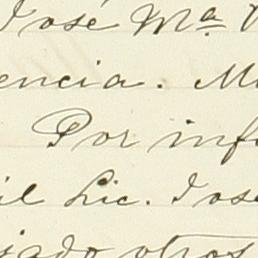 José Mª
encia. M
Por inf
il Lic. Jos
jado otros